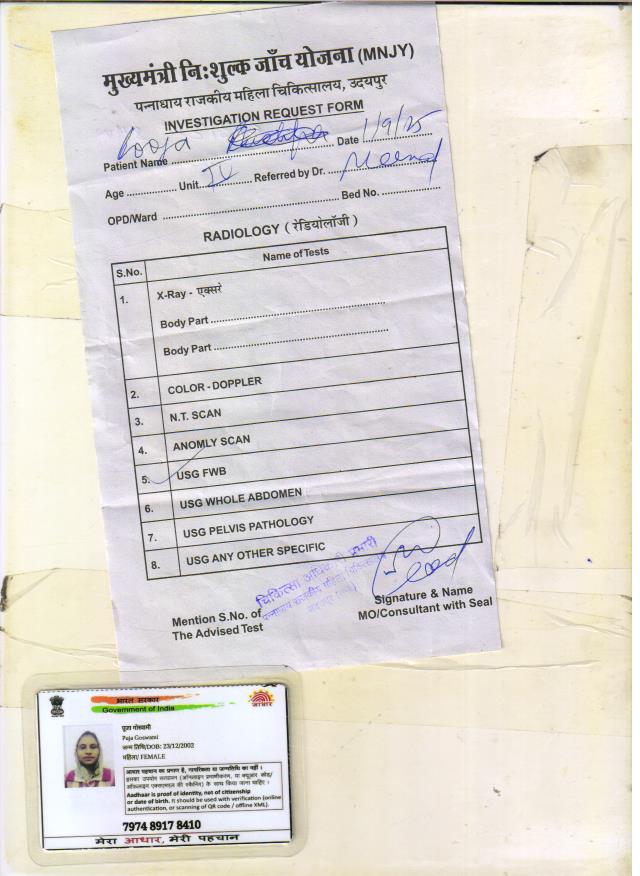 मुख्यमंत्री निःशुल्क जाँच योजना (MNJY)
पन्नाधाय राजकीय महिला चिकित्सालय, उदयपुर
INVESTIGATION REQUEST FORM
Patient Name Pooja Date 1/9/25
Age ............... Unit IV Referred by Dr.
OPD/Ward ............... Bed No. ...............
RADIOLOGY ( रेडियोलॉजी )
S.No. Name of Tests
1. X-Ray - एक्सरे
Body Part ...............
Body Part ...............
2. COLOR - DOPPLER
3. N.T. SCAN
4. ANOMLY SCAN
5. USG FWB
6. USG WHOLE ABDOMEN
7. USG PELVIS PATHOLOGY
8. USG ANY OTHER SPECIFIC
चिकित्सा अधिकारी प्रभारी
पन्नाधाय राजकीय महिला चिकित्सालय
Mention S.No. of
The Advised Test
Signature & Name
MO/Consultant with Seal
भारत सरकार
Government of India
आधार
पूजा गोस्वामी
Puja Goswami
जन्म तिथि/DOB: 23/12/2002
महिला/ FEMALE
आधार पहचान का प्रमाण है, नागरिकता या जन्मतिथि का नहीं ।
इसका उपयोग सत्यापन (ऑनलाइन प्रमाणीकरण, या क्यूआर कोड/
ऑफलाइन एक्सएमएल की स्कैनिंग) के साथ किया जाना चाहिए ।
Aadhaar is proof of identity, not of citizenship
or date of birth. It should be used with verification (online
authentication, or scanning of QR code / offline XML).
7974 8917 8410
मेरा आधार, मेरी पहचान